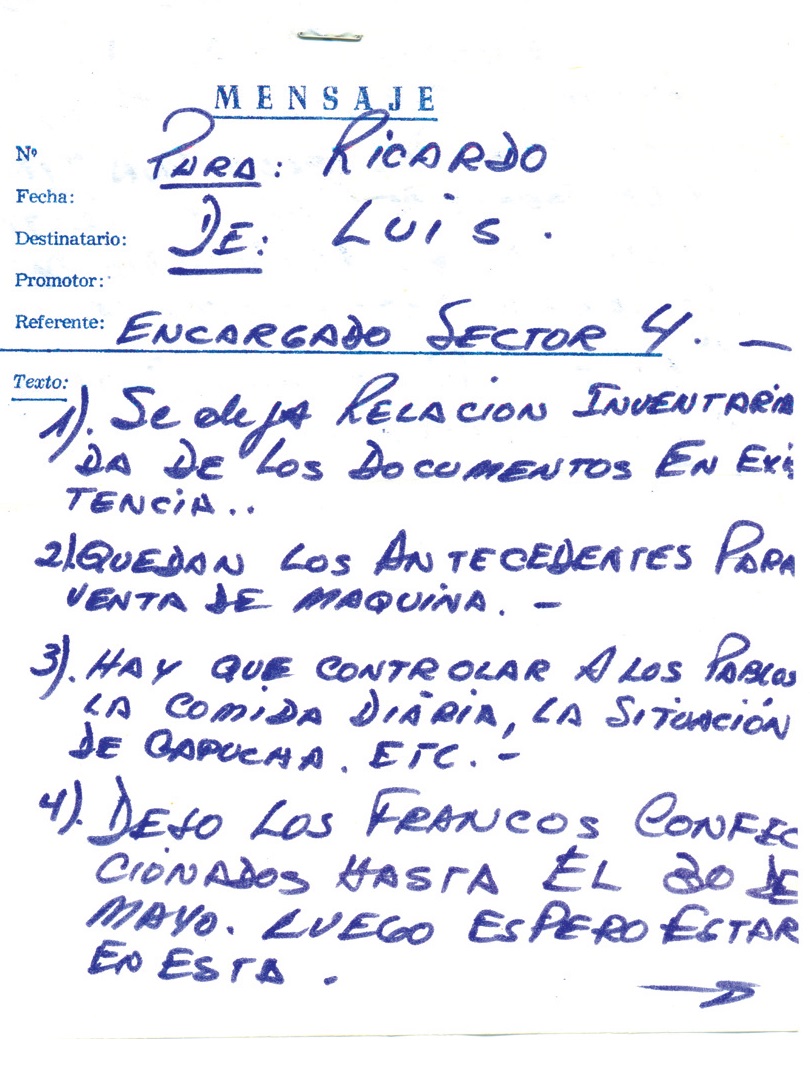 MENSAJE
Nº PARA: RICARDO
Fecha:
Destinatario: DE: LUIS.
Promotor:
Referente: ENCARGADO SECTOR 4. —
Texto:
1). Se deja RELACION INVENTARIA
DA DE LOS DOCUMENTOS EN EXIS
TENCIA..
2). QUEDAN LOS ANTECEDENTES PARA
VENTA DE MAQUINA. -
3). HAY QUE CONTROLAR A LOS PABLOS
LA COMIDA DIÁRIA, LA SITUACIÓN
DE CAPUCHA. ETC. -
4). DEJO LOS FRANCOS CONFEC
CIONADOS HASTA EL 30 DE
MAYO. LUEGO ESPERO ESTAR
EN ESTA. →